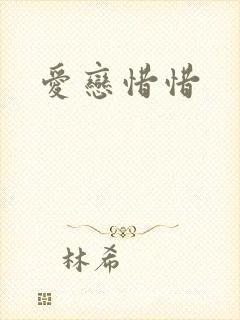 愛戀惜惜
林希